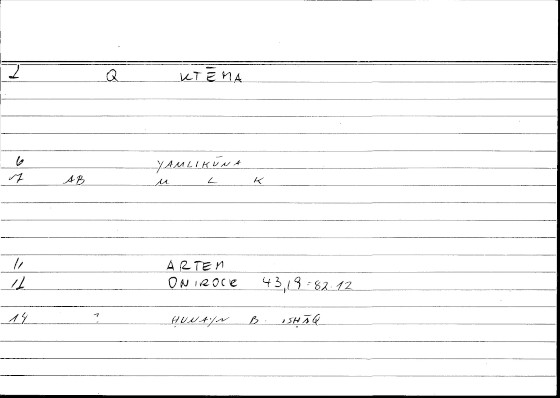 1 Q KTĒMA
6 YAMLIKŪNA
7 AB M L K
11 ARTEM
12 ONIROCR 43,19=82.12
14 ? ḤUNAYN B. ISḤĀQ